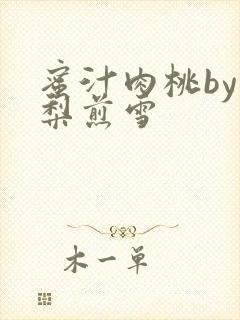 蜜汁肉桃by
梨煎雪
木一单